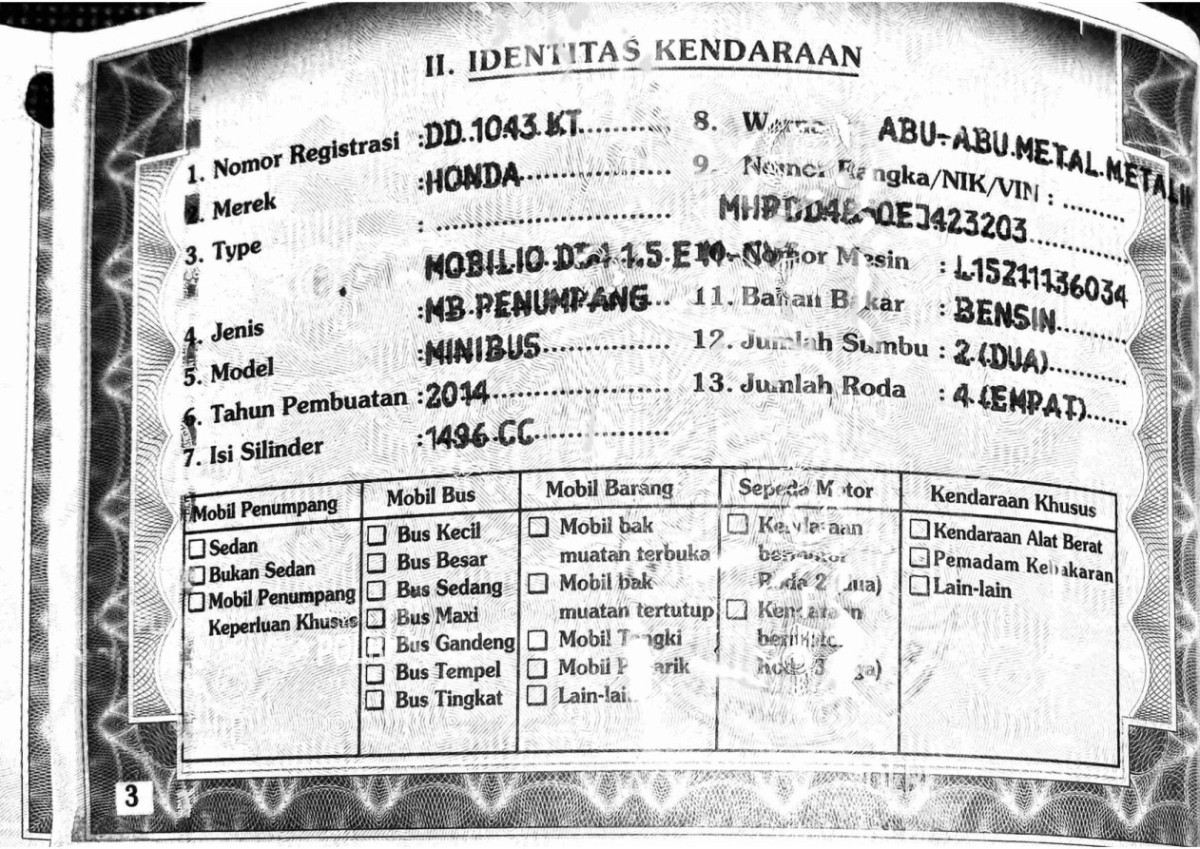 II. IDENTITAS KENDARAAN
1. Nomor Registrasi :DD.1043.KT
2. Merek :HONDA
3. Type :
MOBILIO 1.5 E
4. Jenis :MB.PENUMPANG
5. Model :MINIBUS
6. Tahun Pembuatan :2014
7. Isi Silinder :1496 CC
8. ABU-ABU.METAL.METALIK
9. Nomor Rangka/NIK/VIN :
Nomor Mesin :
11. Bahan Bakar : BENSIN
12. Jumlah Sumbu : 2 (DUA)
13. Jumlah Roda : 4 (EMPAT)
Mobil Penumpang
Sedan
Bukan Sedan
Mobil Penumpang
Keperluan Khusus
Mobil Bus
Bus Kecil
Bus Besar
Bus Sedang
Bus Maxi
Bus Gandeng
Bus Tempel
Bus Tingkat
Mobil Barang
Mobil bak
muatan terbuka
Mobil bak
muatan tertutup
Mobil Tangki
Mobil
Lain-lain
Sepeda Motor
Kendaraan
bermotor
Roda 2 (Dua)
Kendaraan
Kendaraan Khusus
Kendaraan Alat Berat
Pemadam Kebakaran
Lain-lain
3